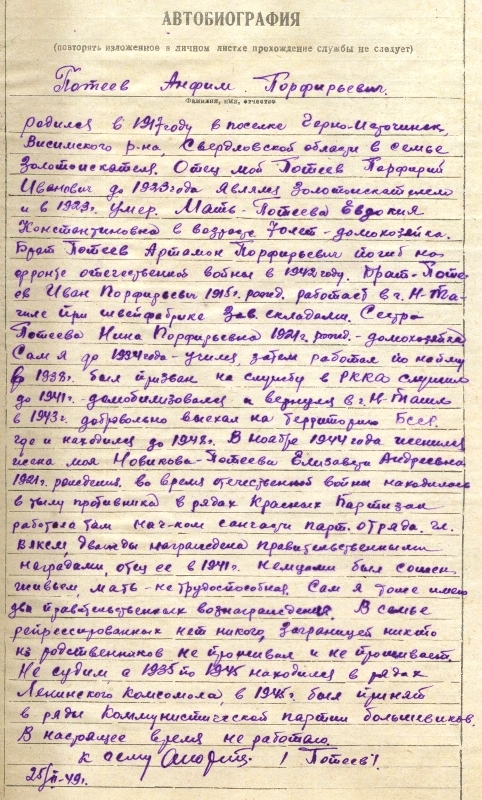 АВТОБИОГРАФИЯ
(повторять изложенное в личном листке прохождение службы не следует)
Потеев Анфим Порфирьевич.
Фамилия, имя, отчество
родился в 1917 году в поселке Черно-Источинск,
Висимского р-на, Свердловской области в семье
Золотоискателя. Отец мой Потеев Порфирий
Иванович до 1923 года являлся Золотоискателем
и в 1923г. умер. Мать - Потеева Евдокия
Константиновна в возрасте 70 лет - домохозяйка.
Брат Потеев Артамон Порфирьевич погиб на
фронте отечественной войны в 1942 году. Брат - Поте-
ев Иван Порфирьевич 1915г. рожд. работает в г. Н-Та-
гиле при швейфабрике Зав. складами. Сестра
Потеева Нина Порфирьевна 1921г. рожд. - домохозяйка
Сам я до 1934 года - учился, затем работал по найму
в 1938г. был призван на службу в РККА служил
до 1941г. - домобилизовался и вернулся в г. Н-Тагил
в 1943г. добровольно выехал на территорию Бсср.
где и находился до 1948г. В ноябре 1944 года женился
жена моя Новикова-Потеева Елизавета Андреевна
1921г. рождения, во время отечественной войны находилась
в тылу противника в рядах Красных Партизан
работала там нач-ком санчасти парт. отряда. чл.
ВЛКСМ, дважды награждена правительственными
наградами, отец ее в 1941г. немцами был сожжен
живьем, мать - не трудоспособная. Сам я тоже имею
два правительственных вознаграждения. В семье
репрессированных нет никого, заграницей никто
из родственников не проживал и не проживает.
Не судим а 1935 по 1945 находился в рядах
Ленинского Комсомола, в 1945г. был принят
в ряды Коммунистической партии большевиков.
В настоящее время не работаю.
к сему Потеев!